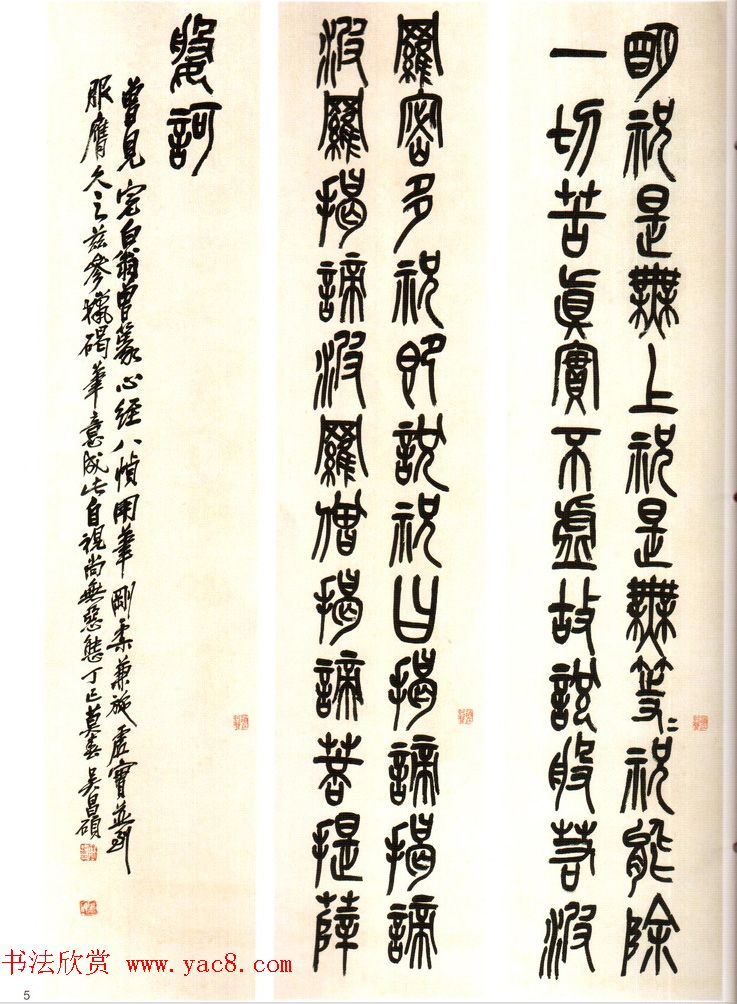 明祝是無上祝是無等〻祝能除
一切苦眞實不虛故說般若波
羅密多祝即說祝曰揭諦揭諦
波羅揭諦波羅僧揭諦菩提薩
婆訶
曾見完白翁曾篆心經八幀用筆剛柔兼施虛實並到
服膺久之茲參獵碣筆意成此自視尚無惡態丁巳莫春吳昌碩
书法欣赏 www.yac8.com
5